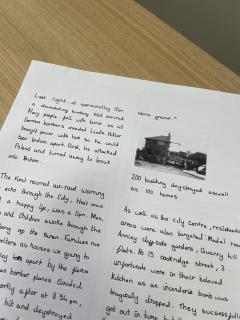 Last night, at approximatly 11pm
a devastating bombing raid occured
Many people fell with terror as 40
German bombers invaded Leeds. Hitler
bought power with him so he could
tear Britain apart. First, he attacked
Poland and turned away to break
into Britain.
The first recored air-raid warning
echo through the City. Has once
a happy life, was a 11pm. Men,
and Children awoke through the
of the siren. Families run
as houses are going to
apart by the
bomber planes clouded
shortly after at 11:54pm,
hit and destroyed
stone ground."
200 building destroyed aswell
as 100 homes
As well as the city centre, residential
areas were also targeted. Model road
Armley clipside gardens, Quarry hill
flats. At 15 cookridge street, 3
unfortunate were in their beloved
kitchen as an incenderie bomb was
tragically dropped. They successfully
got out in time but